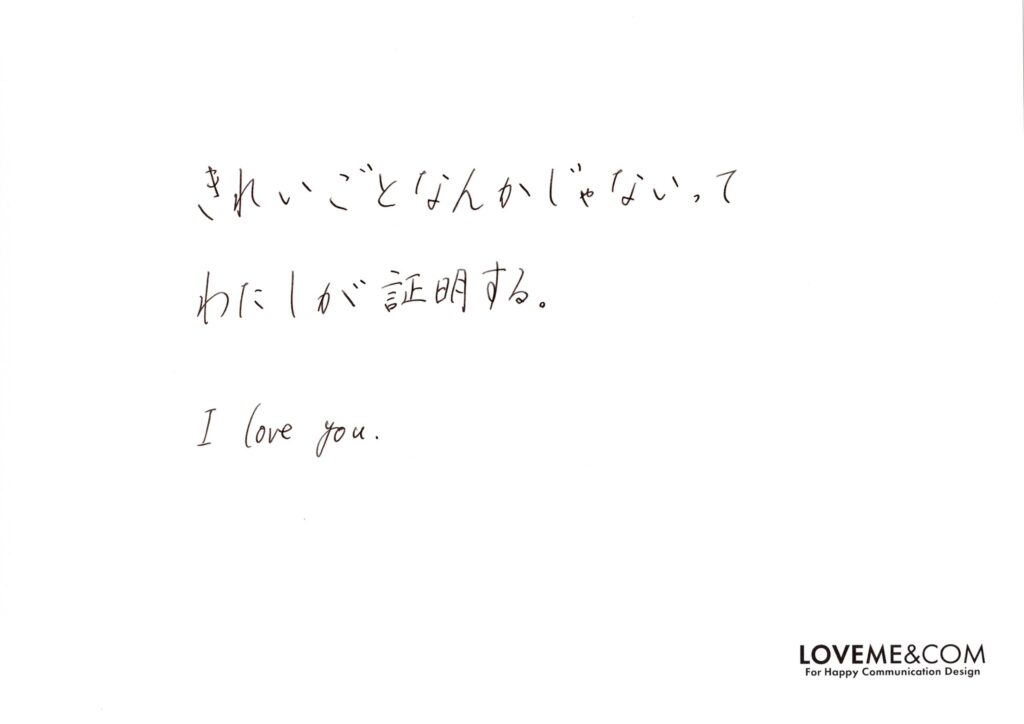 きれいごとなんかじゃないって
わたしが証明する。
I love you.
LOVEME&COM
For Happy Communication Design